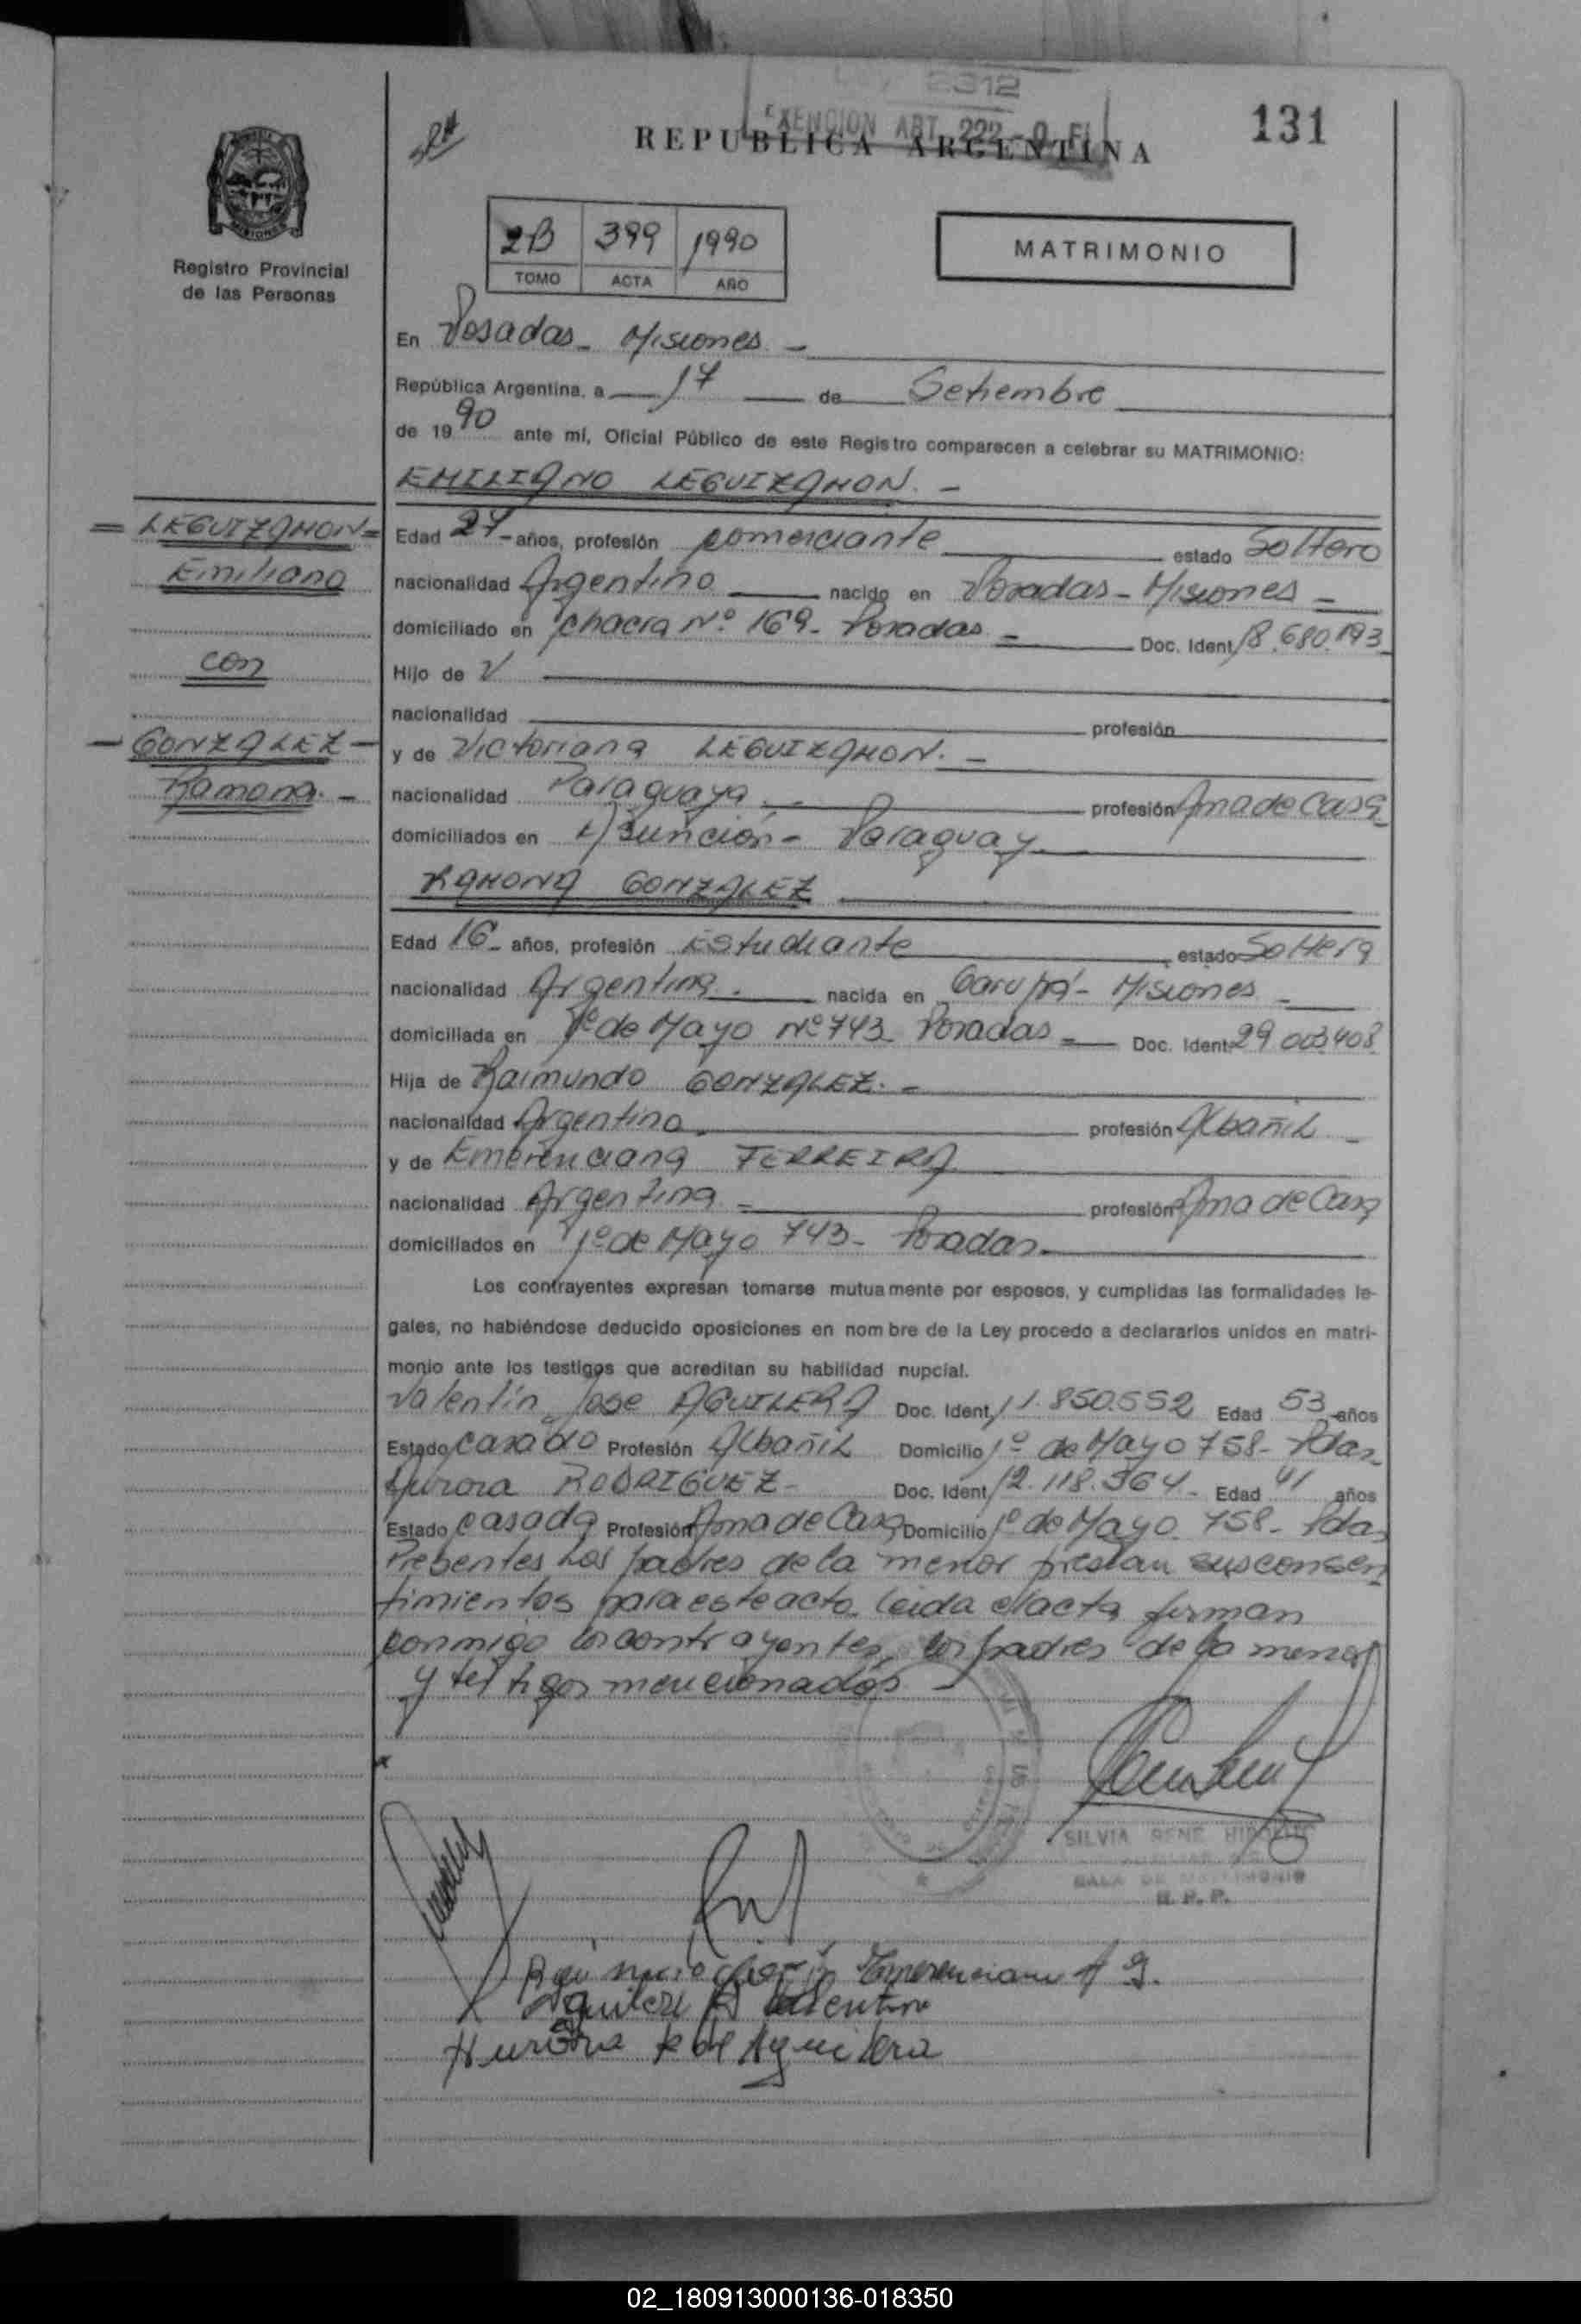 2312
EXENCION ART. 222
131
REPUBLICA ARGENTINA
Registro Provincial
de las Personas
2B 399 1990
TOMO ACTA AÑO
MATRIMONIO
En Posadas - Misiones -
República Argentina, a 17 de Setiembre
de 1990 ante mí, Oficial Público de este Registro comparecen a celebrar su MATRIMONIO:
EMILIANO LEGUIZAMON. -
= LEGUIZAMON =
Emiliano
con
- GONZALEZ -
Ramona. -
Edad 27 - años, profesión comerciante estado Soltero
nacionalidad Argentino nacido en Posadas - Misiones -
domiciliado en Chacra Nº 169 - Posadas - Doc. Ident. 18.680.193
Hijo de
nacionalidad profesión
y de Victoriana LEGUIZAMON. -
nacionalidad Paraguaya profesión Ama de Casa
domiciliados en Asunción - Paraguay
RAMONA GONZALEZ
Edad 16 - años, profesión Estudiante estado Soltera
nacionalidad Argentina. nacida en Garupá - Misiones -
domiciliada en 1º de Mayo Nº 743 Posadas - Doc. Ident. 29.003.408
Hija de Raimundo GONZALEZ. -
nacionalidad Argentino profesión Albañil -
y de Emerenciana FERREIRA
nacionalidad Argentina - profesión Ama de Casa
domiciliados en 1º de Mayo 743 - Posadas.
Los contrayentes expresan tomarse mutuamente por esposos, y cumplidas las formalidades le-
gales, no habiéndose deducido oposiciones en nombre de la Ley procedo a declararlos unidos en matri-
monio ante los testigos que acreditan su habilidad nupcial.
Valentín Jose AGUILERA Doc. Ident. 11.850.552 Edad 53 años
Estado casado Profesión Albañil Domicilio 1º de Mayo 758 - Pdas.
Aurora RODRIGUEZ - Doc. Ident. 12.118.564 - Edad 41 años
Estado casada Profesión Ama de Casa Domicilio 1º de Mayo 758 - Pdas
Presentes Los padres de la menor prestan sus consen
timientos para este acto. leida el acta firman
conmigo los contrayentes, los padres de la menor
y testigos mencionados -
SILVIA RENE
SALA DE MATRIMONIO
R. P. P.
Emerenciana
Aguilera Valentin
Aurora R de Aguilera
02_180913000136-018350